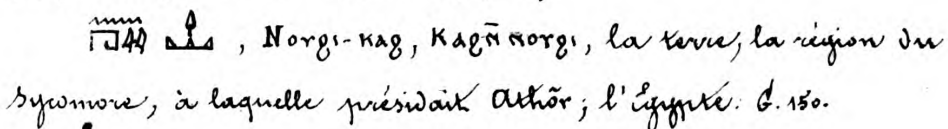 , Ⲛⲟⲩϩⲓ-ⲕⲁϩ, ⲕⲁϩⲛ̄ ⲛⲟⲩϩⲓ, la terre, la région du
Sycomore, à laquelle présidait Athôr; l'Égypte. G. 150.